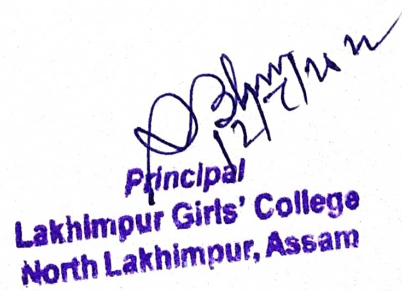 12/7/2022
Principal
Lakhimpur Girls' College
North Lakhimpur, Assam